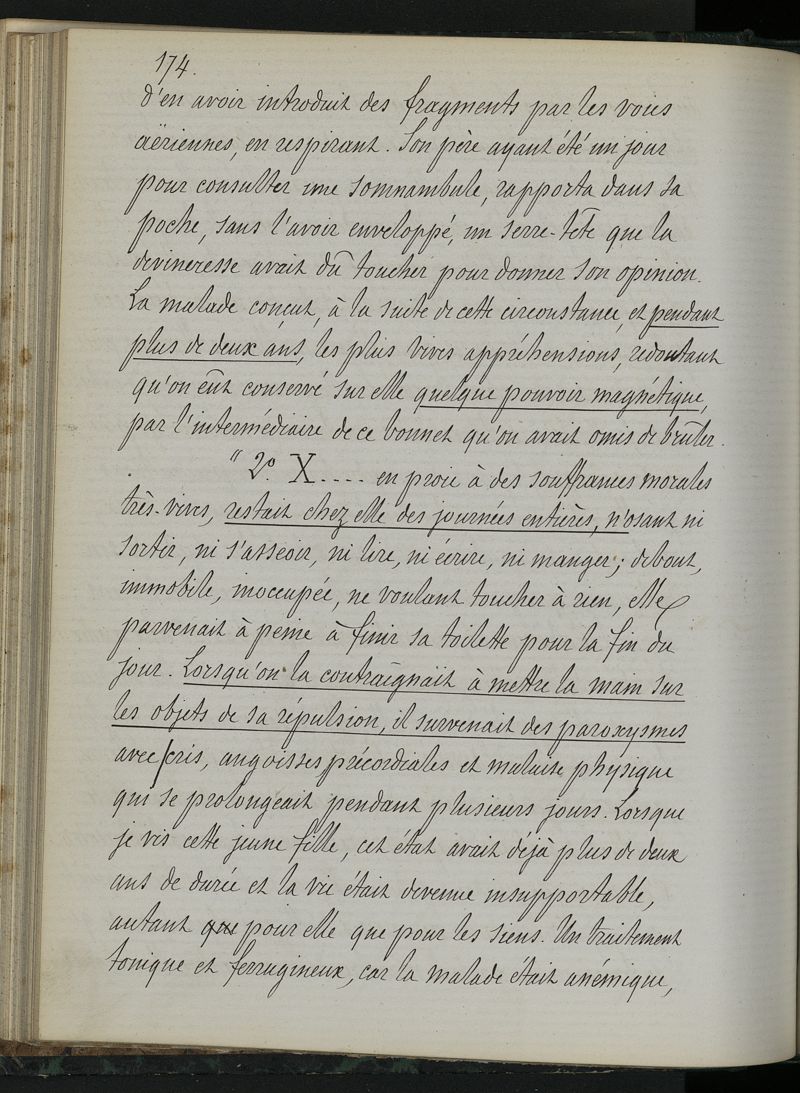 174.
d'en avoir introduit des fragments par les voies
aëriennes, en respirant. Son père ayant été un jour
pour consulter une somnambule, rapporta dans sa
poche, sans l'avoir enveloppé, un serre-tête que la
devineresse avait dû toucher pour donner son opinion.
La malade conçut, à la suite de cette circonstance, et pendant
plus de deux ans, les plus vives appréhensions, redoutant
qu'on eût conservé sur elle quelque pouvoir magnétique,
par l'intermédiaire de ce bonnet qu'on avait omis de brûler.
" 2º. X.... en proie à des souffrances morales
très-vives, restait chez elle des journées entières, n'osant ni
sortir, ni s'asseoir, ni lire, ni écrire, ni manger; debout,
immobile, inoccupée, ne voulant toucher à rien, elle
parvenait à peine à finir sa toilette pour la fin du
jour. Lorsqu'on la contraignait à mettre la main sur
les objets de sa répulsion, il survenait des paroxysmes
avec cris, angoisses précordiales et malaise physique
qui se prolongeait pendant plusieurs jours. Lorsque
je vis cette jeune fille, cet état avait déjà plus de deux
ans de durée et la vie était devenue insupportable,
autant que pour elle que pour les siens. Un traitement
tonique et ferrugineux, car la malade était anémique,